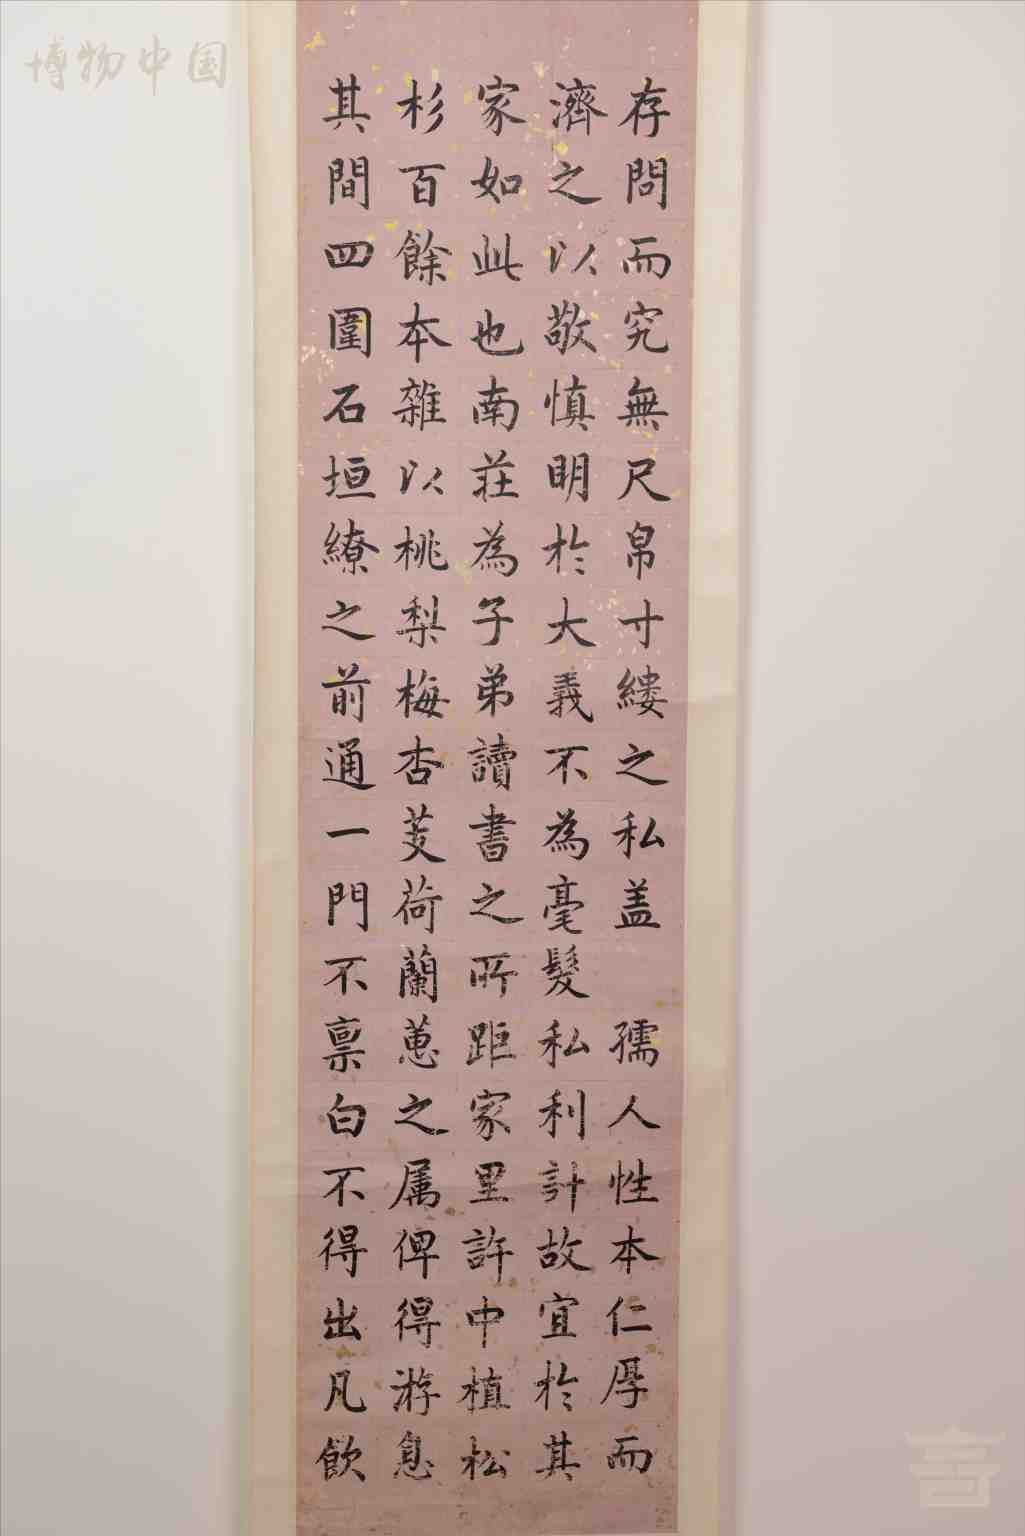 存問而究無尺帛寸縷之私盖　孺人性本仁厚而
濟之以敬慎明於大義不為毫髮私利計故宜於其
家如此也南莊為子弟讀書之所距家里許中植松
杉百餘本雜以桃梨梅杏芰荷蘭蕙之属俾得游息
其間四圍石垣繚之前通一門不禀白不得出凡飲
博物中国